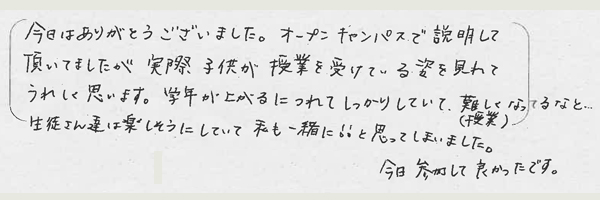 今日はありがとうございました。オープンキャンパスで説明して
頂いてましたが実際子供が授業を受けている姿を見れて
うれしく思います。学年が上がるにつれてしっかりしていて、難しくなってるなと…
(授業)
生徒さん達は楽しそうにしていて私も一緒に!!と思ってしまいました。
今日参加して良かったです。